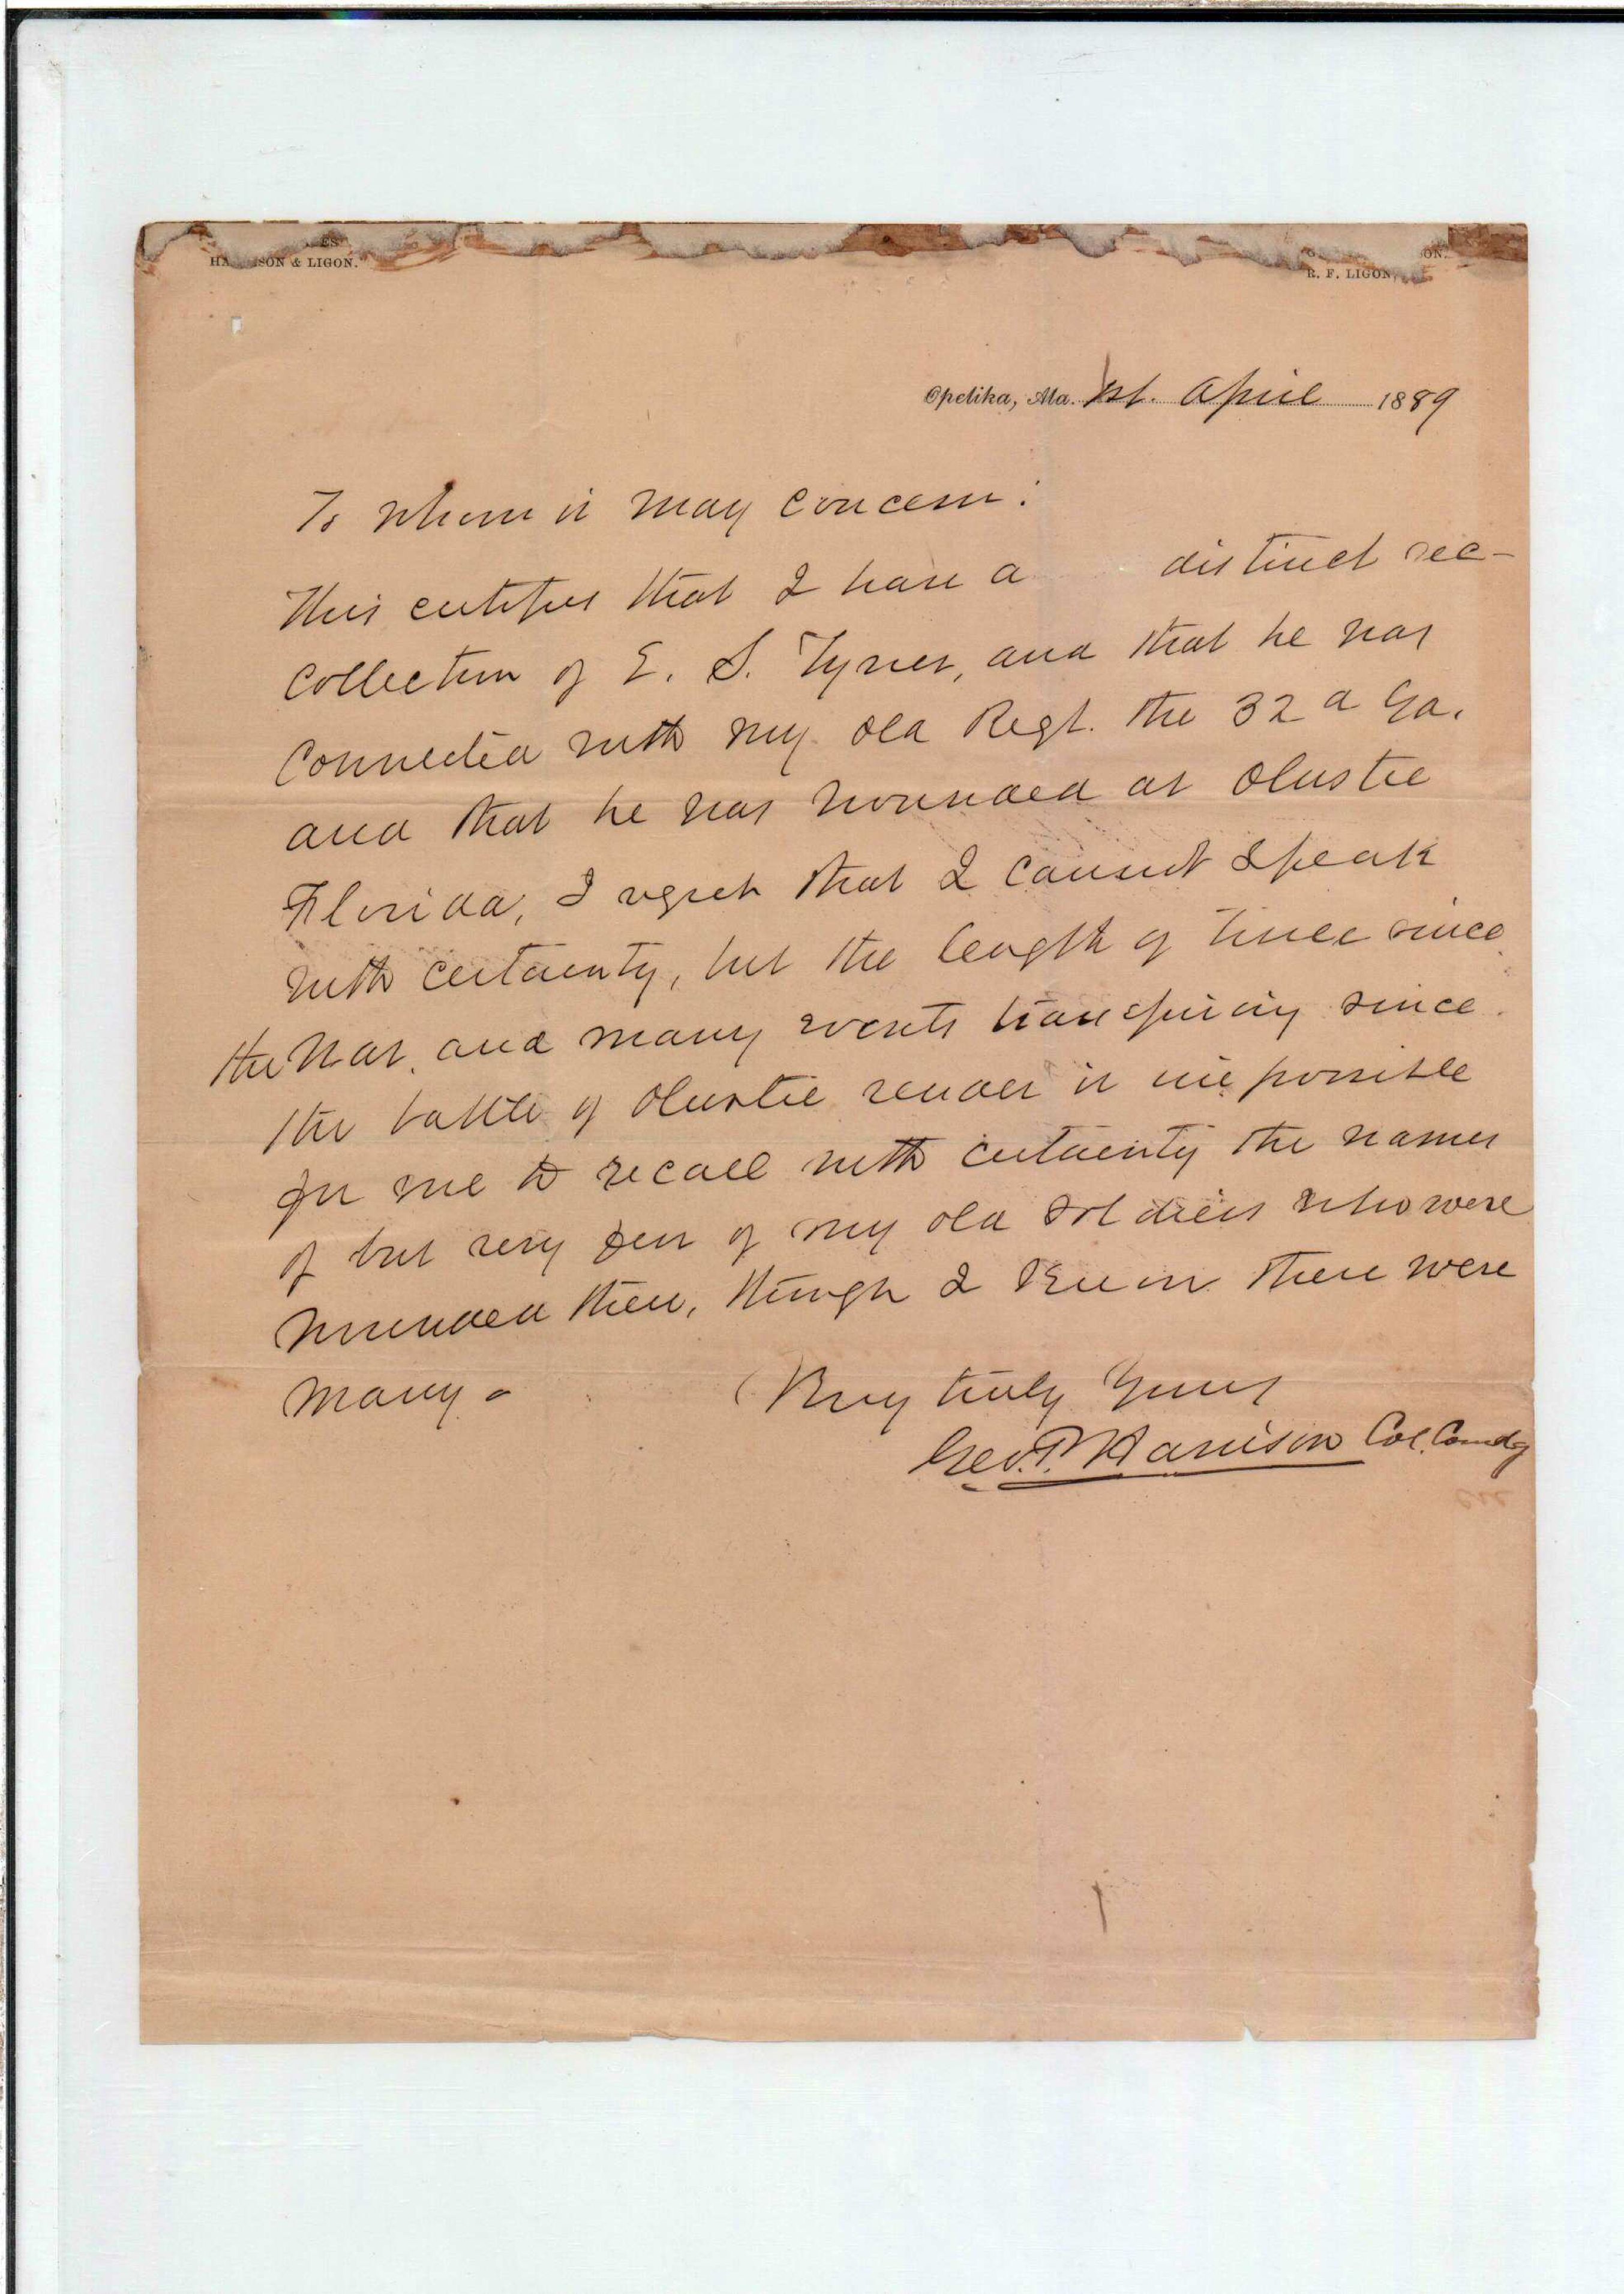 ES
HA SON & LIGON.
G ON.
R. F. LIGON,
Opelika, Ala. 1st. April 1889
To whom it may concern:
This certifies that I have a distinct rec-
collection of E. S. Tyner, and that he was
connected with my old Regt. the 32d Ga.
and that he was wounded at Olustee
Florida, I regret that I cannot speak
with certainty, but the length of time since
the War, and many events transpiring since
the battle of Olustee render it impossible
for me to recall with certainty the names
of but very few of my old soldiers who were
wounded there, though I know there were
many-
Very truly yours
Geo. P. Harrison Col. Comdg